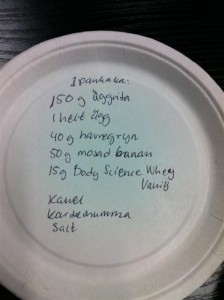 1 pankaka:
150 g äggvita
1 helt ägg
40 g havregryn
50 g mosad banan
15 g Body Science Whey
Vanilj
Kanel
Kardemumma
Salt